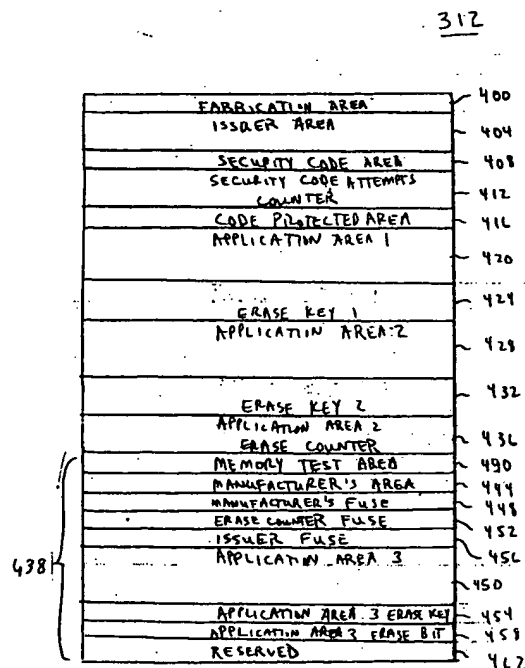 312
FABRICATION AREA 400
ISSUER AREA 404
SECURITY CODE AREA 408
SECURITY CODE ATTEMPTS
COUNTER 412
CODE PROTECTED AREA 416
APPLICATION AREA 1
420
424
ERASE KEY 1
APPLICATION AREA 2
428
432
ERASE KEY 2
APPLICATION AREA 2
ERASE COUNTER 436
MEMORY TEST AREA 440
MANUFACTURER'S AREA 444
MANUFACTURER'S FUSE 448
ERASE COUNTER FUSE 452
ISSUER FUSE 456
APPLICATION AREA 3
438
450
APPLICATION AREA 3 ERASE KEY 454
APPLICATION AREA 3 ERASE BIT 458
RESERVED 462